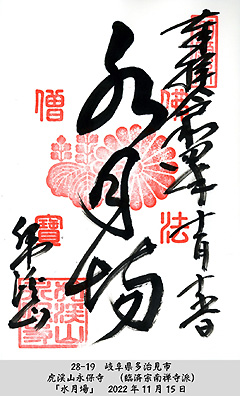 奉拝 令和四年 十一月 十五日
佛
法
僧
寳
水月場
虎渓山
28-19　岐阜県多治見市
虎渓山永保寺　（臨済宗南禅寺派）
「水月場」　2022年11月15日